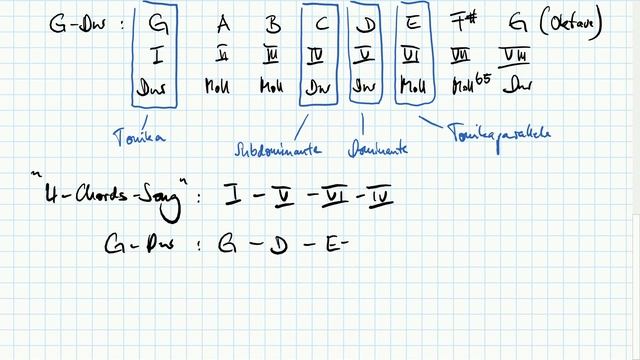 G-Dur : G A B C D E F# G (Oktave)
I II III IV V VI VII VIII
Dur Moll Moll Dur Dur Moll Moll b5 Dur
Tonika Subdominante Dominante Tonikaparallele
"4-Chords-Song" : I - V - VI - IV
G-Dur : G - D - E-